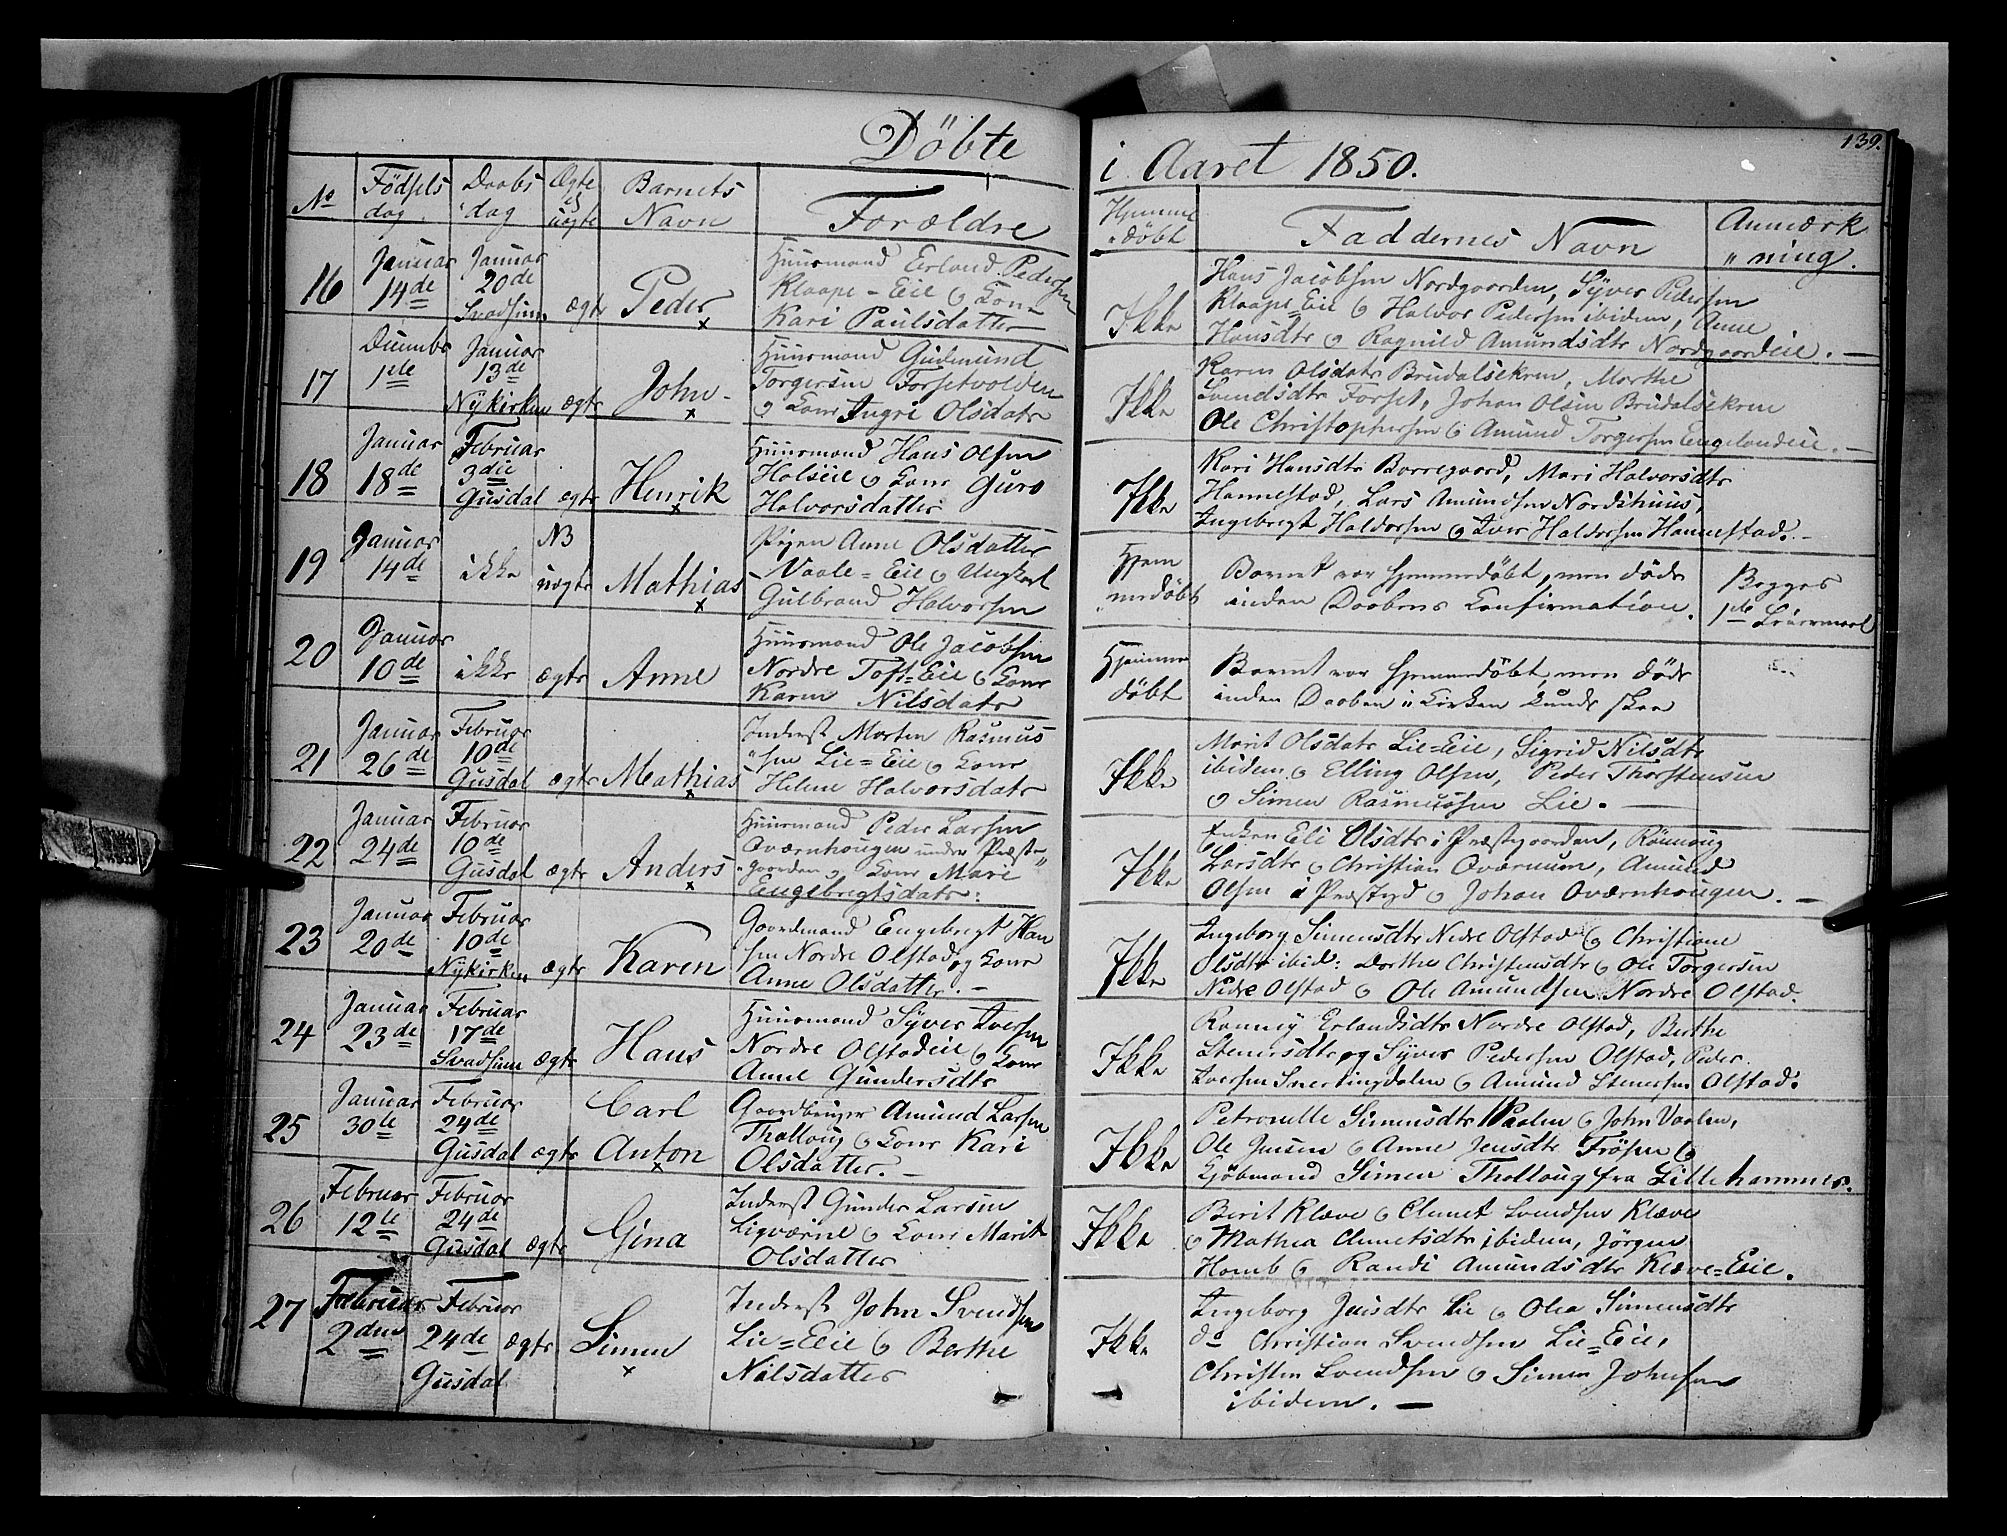 Döbte
i Aaret 1850.
139.
No
Födsels dag
Daabs dag
Ægte el uægte
Barnets Navn
Forældre
Hjemme döbt
Faddernes Navn
Anmærk „ning.
16
Januar 14de
Januar 20de Svadsum
ægte
Peder
Huusmand Erland Pedersen
Klaape-Eie og Kone
Kari Paulsdatter
Ikke
Hans Jacobsen Nordgaarden, Syver Pedersen
Klaape-Eie og Halvor Pedersen ibidem, Anne
Hansdtr og Ragnild Amundsdtr Nordgaardeie.
17
Decembr 1ste
Januar 13de Nykirken
ægte
John
Huusmand Gudmund
Torgersen Forsetvolden
og Kone Ingri Olsdatr
Ikke
Karen Olsdatr Brudalsekren, Marthe
Svendsdtr Forset, Johan Olsen Brudalsekren
Ole Christophersen og Amund Torgersen Engelandeie.
18
Januar 18de
Februar 3die Gusdal
ægte
Henrik
Huusmand Hans Olsen
Holseie og Kone Guro
Halvorsdatter
Ikke
Kari Hansdtr Borregaard, Mari Halvorsdtr
Hannestad, Lars Amundsen Nordihuus,
Ingebregt Haldorsen og Iver Haldorsen Hannestad.
19
Januar 14de
ikke
NB uægte
Mathias
Pigen Anne Olsdatter
Vaale-Eie og Ungkarl
Gulbrand Halvorsen
Hjem „medöbt
Barnet var hjemmedöbt, men döde
inden Daabens Confirmation.
Begges
1ste Leiermaal
20
Januar 10de
ikke
ægte
Anne
Huusmand Ole Jacobsen
Nordre Toft-Eie og Kone
Karen Nilsdatr
Hjemme döbt
Barnet var hjemmedöbt, men döde
inden Daaben i Kirken kunde skee
21
Januar 26de
Februar 10de Gusdal
ægte
Mathias
Inderst Morten Rasmus
„sen Lie-Eie og Kone
Helene Halvorsdatr
Ikke
Marit Olsdatr Lie-Eie, Sigrid Nilsdtr
ibidem og Elling Olsen, Peder Thorstensen
og Simen Rasmussen Lie.
22
Januar 24de
Februar 10de Gusdal
ægte
Anders
Huusmand Peder Larsen
Oværnhougen under Præste„
„gaarden og Kone Mari
Engebregtsdatr:
Ikke
Enken Eli Olsdtr i Præstgaarden, Rönnoug
Larsdtr og Christian Oværnum, Amund
Olsen i Præstgd og Johan Oværnhougen.
23
Januar 20de
Februar 10de Nykirken
ægte
Karen
Gaardmand Engebregt Han
sen Nordre Olstad og Kone
Anne Olsdatter.
Ikke
Ingeborg Simensdtr Nedre Olstad og Christiane
Olsdtr ibid: Dorthe Christensdtr og Ole Torgersen
Nedre Olstad og Ole Amundsen Nordre Olstad.
24
Januar 23de
Februar 17de Svadsum
ægte
Hans
Huusmand Syver Iversen
Nordre Olstadeie og Kone
Anne Gundersdtr
Ikke
Ronney Erlandsdtr Nordre Olstad, Berthe
Stenersdtr og Syver Pedersen Olstad, Peder
Iversen Snertingdalen og Amund Stenersen Olstad.
25
Januar 30te
Februar 24de Gusdal
ægte
Carl Anton
Gaardbruger Amund Larsen
Thalloug og Kone Kari
Olsdatter.
Ikke
Petronelle Simensdtr Vaalen og John Vaalen,
Ole Jensen og Anne Jensdtr Frösen og
Kjöbmand Simen Thalloug fra Lillehammer.
26
Februar 12te
Februar 24de Gusdal
ægte
Gina
Inderst Gunder Larsen
Ligværne og Kone Marit
Olsdatter
Ikke
Berit Klæve og Svendsen Klæve
og Mathea ibidem, Jörgen
Homb og Randi Amundsdtr Klæve-Eie.
27
Februar 2den
Februar 24de Gusdal
ægte
Simen
Inderst John Svendsen
Lie-Eie og Berthe
Nilsdatter
Ikke
Ingeborg Jensdtr Lie og Olea Simensdtr
do Christian Svendsen Lie-Eie,
Christen Svendsen og Simen Johnsen
ibidem.